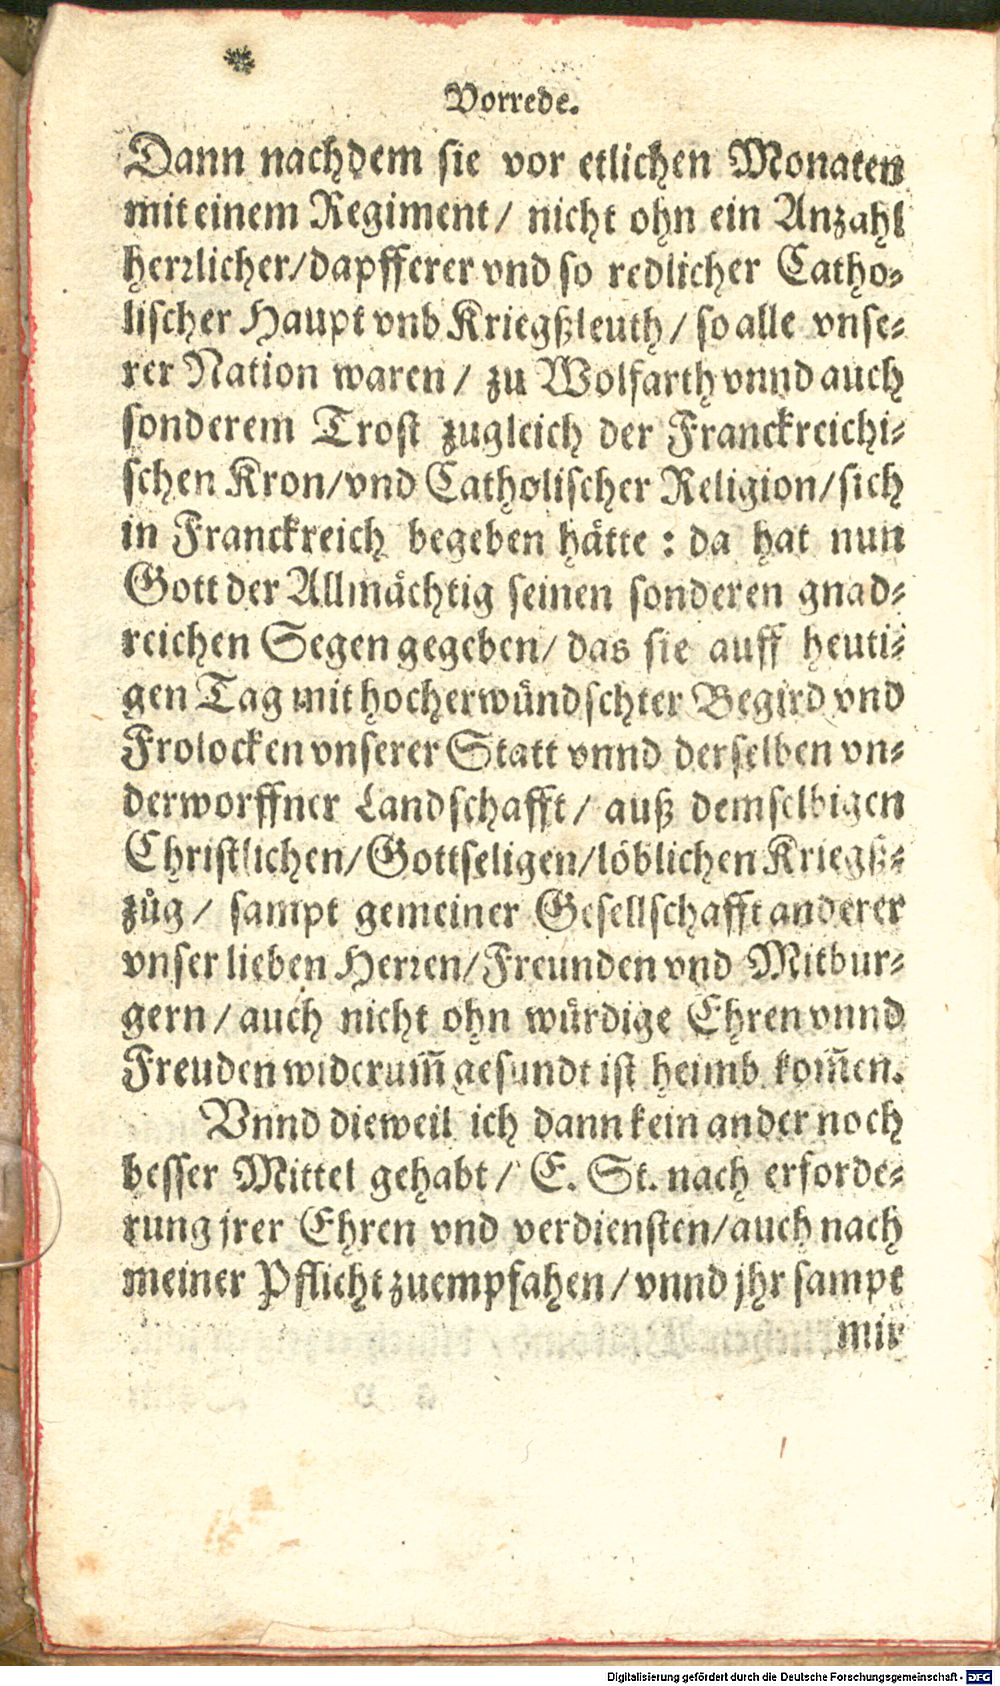 Vorrede.
Dann nachdem sie vor etlichen Monaten
mit einem Regiment/ nicht ohn ein Anzahl
herꝛlicher/dapfferer vnd so redlicher Catho-
lischer Haupt vnb Kriegßleuth/ so alle vnse-
rer Nation waren/ zu Wolfarth vnnd auch
sonderem Trost zugleich der Franckreichi-
schen Kron/vnd Catholischer Religion/sich
in Franckreich begeben hätte : da hat nun
Gott der Allmächtig seinen sonderen gnad-
reichen Segen gegeben/ das sie auff heuti-
gen Tag mit hocherwündschter Begird vnd
Frolocken vnserer Statt vnnd derselben vn-
derworffner Landschafft/ auß demselbigen
Christlichen/Gottseligen/löblichen Kriegß-
zůg/ sampt gemeiner Gesellschafft anderer
vnser lieben Herꝛen/Freunden vnd Mitbur-
gern/auch nicht ohn würdige Ehren vnnd
Freuden widerum̃ gesundt ist heimb kom̃en.
Vnnd dieweil ich dann kein ander noch
besser Mittel gehabt/ E. St. nach erforde-
rung jrer Ehren vnd verdiensten/auch nach
meiner Pflicht zuempfahen/vnnd jhr sampt
mir
Digitalisierung gefördert durch die Deutsche Forschungsgemeinschaft - DFG